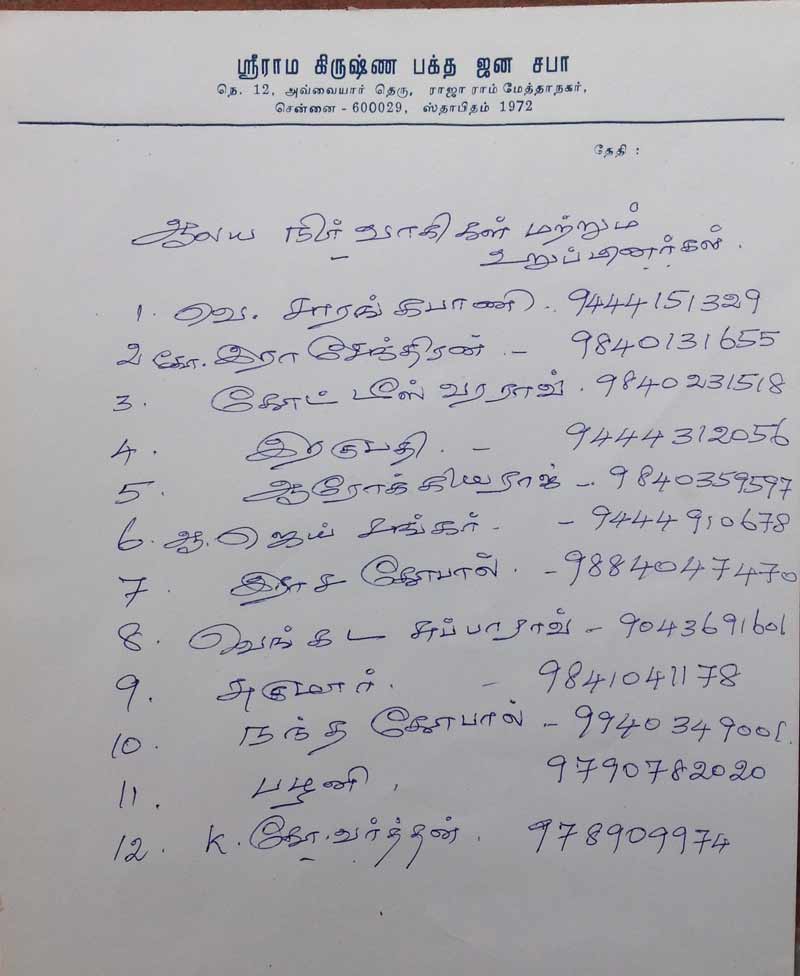 ஸ்ரீராம கிருஷ்ண பக்த ஜன சபா
நெ. 12, அவ்வையார் தெரு, ராஜா ராம் மேத்தாநகர்,
சென்னை - 600029, ஸ்தாபிதம் 1972
தேதி :
ஆலய நிர்வாகிகள் மற்றும்
உறுப்பினர்கள்.
1. வெ. சாரங்கபாணி. 9444151329
2 கோ. இராசேந்திரன் - 9840131655
3. கோட்டீஸ்வரராவ். 9840231518
4. - 9444312056
5. ஆரோக்கியராஜ் - 9840359597
6. ஆ. ஜெய் சங்கர். - 9444910678
7. இராச கோபால். - 9884047470
8. வெங்கட சுப்பாராவ் - 9043691601
9. - 9841041178
10. நந்த கோபால் -
11. பழனி, 9790782020
12. K. கோ.வர்த்தன். 978909974